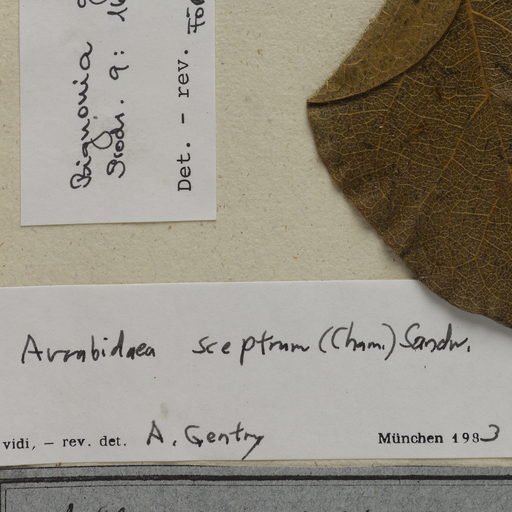 Bignonia
Prodr. 9: 16
Det. - rev. För
Arrabidaea sceptrum (Cham.) Sandw.
vidi, – rev. det. A. Gentry München 1983